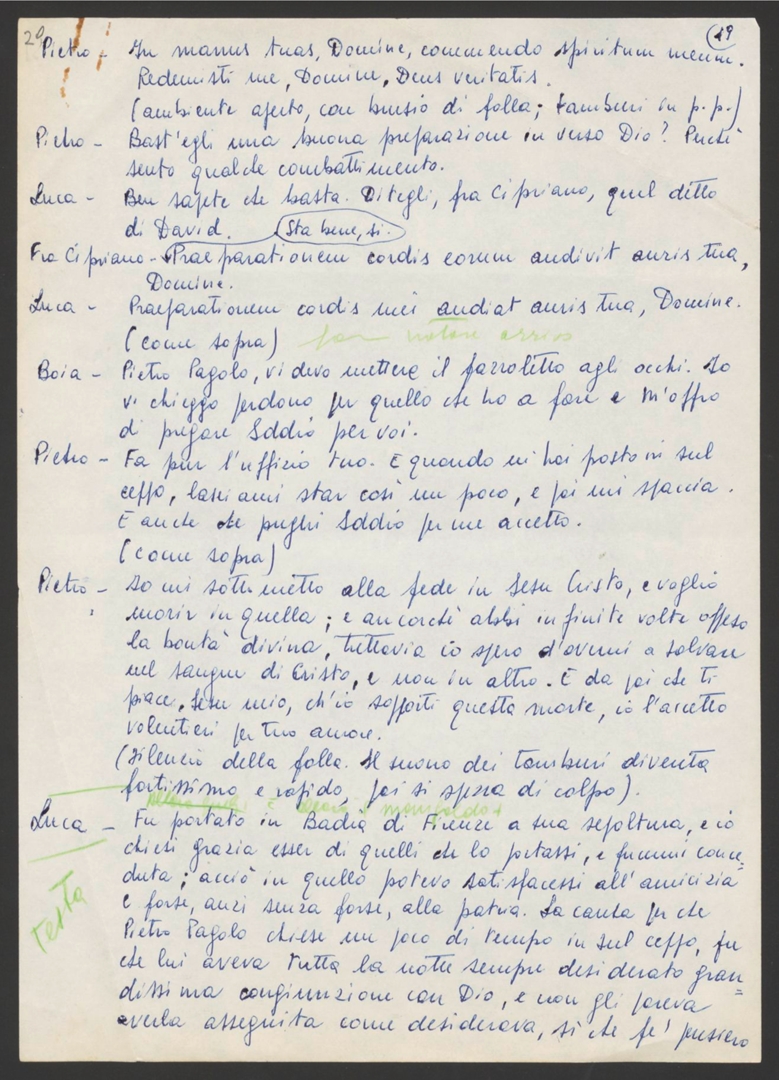 29
29
Pietro - In manus tuas, Domine, commendo spiritum meum.
Redemisti me, Domine, Deus veritatis.
(ambiente aperto, con brusio di folla; tamburi in p.p.)
Pietro - Bast'egli una buona preparazione in verso Dio? Perché
sento qualche combattimento.
Luca - Ben sapete che basta. Ditegli, fra Cipriano, quel detto
di David. Sta bene, sì.
Fra Cipriano - Praeparationem cordis eorum audivit auris tua,
Domine.
Luca - Praeparationem cordis mei audiat auris tua, Domine.
(come sopra) far notare
Boia - Pietro Pagolo, vi devo mettere il fazzoletto agli occhi. Io
vi chieggo perdono per quello che ho a fare e m'offro
di pregare Iddio per voi.
Pietro - Fa pur l'uffizio tuo. E quando mi hai posto in sul
ceppo, lasciami star così un poco, e poi mi spaccia.
E anche che preghi Iddio per me accetto.
(come sopra)
Pietro - Io mi sottometto alla fede in Gesu Cristo, e voglio
morir in quella; e ancorché abbi infinite volte offeso
la bontà divina, tuttavia io spero d'avermi a salvare
nel sangue di Cristo, e non in altro. E da poi che ti
piace, Gesu mio, ch'io sopporti questa morte, io l'accetto
volentieri per tuo amore.
(Silenzio della folla. Il suono dei tamburi diventa
fortissimo e rapido, poi si spezza di colpo).
Luca - Fu portato in Badia di Firenze a sua sepoltura, e io
chiesi grazia esser di quelli che lo portassi, e fummi conce=
duta; acciò in quello potevo satisfacessi all'amicizia
e forse, anzi senza forse, alla patria. La causa per che
Pietro Pagolo chiese un poco di tempo in sul ceppo, fu
che lui aveva tutta la notte sempre desiderato gran=
dissima congiunzione con Dio, e non gli pareva
averla asseguita come desiderava, sì che fe' pensiero
testa